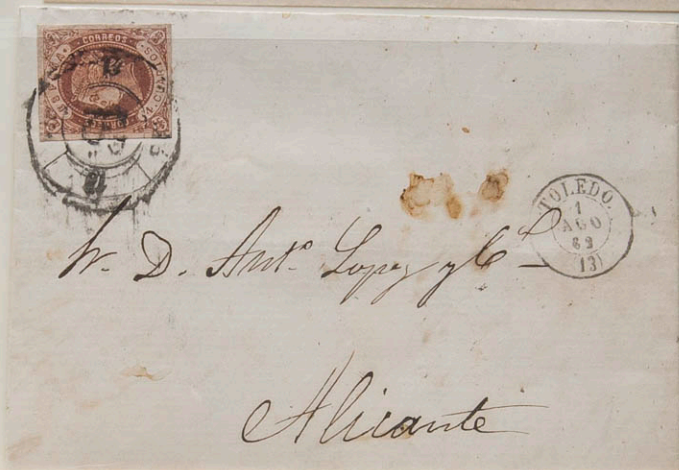 CORREOS
13
TOLEDO.
1
AGO
62
(13)
Sr. D. Antº Lopez y Cª
Alicante